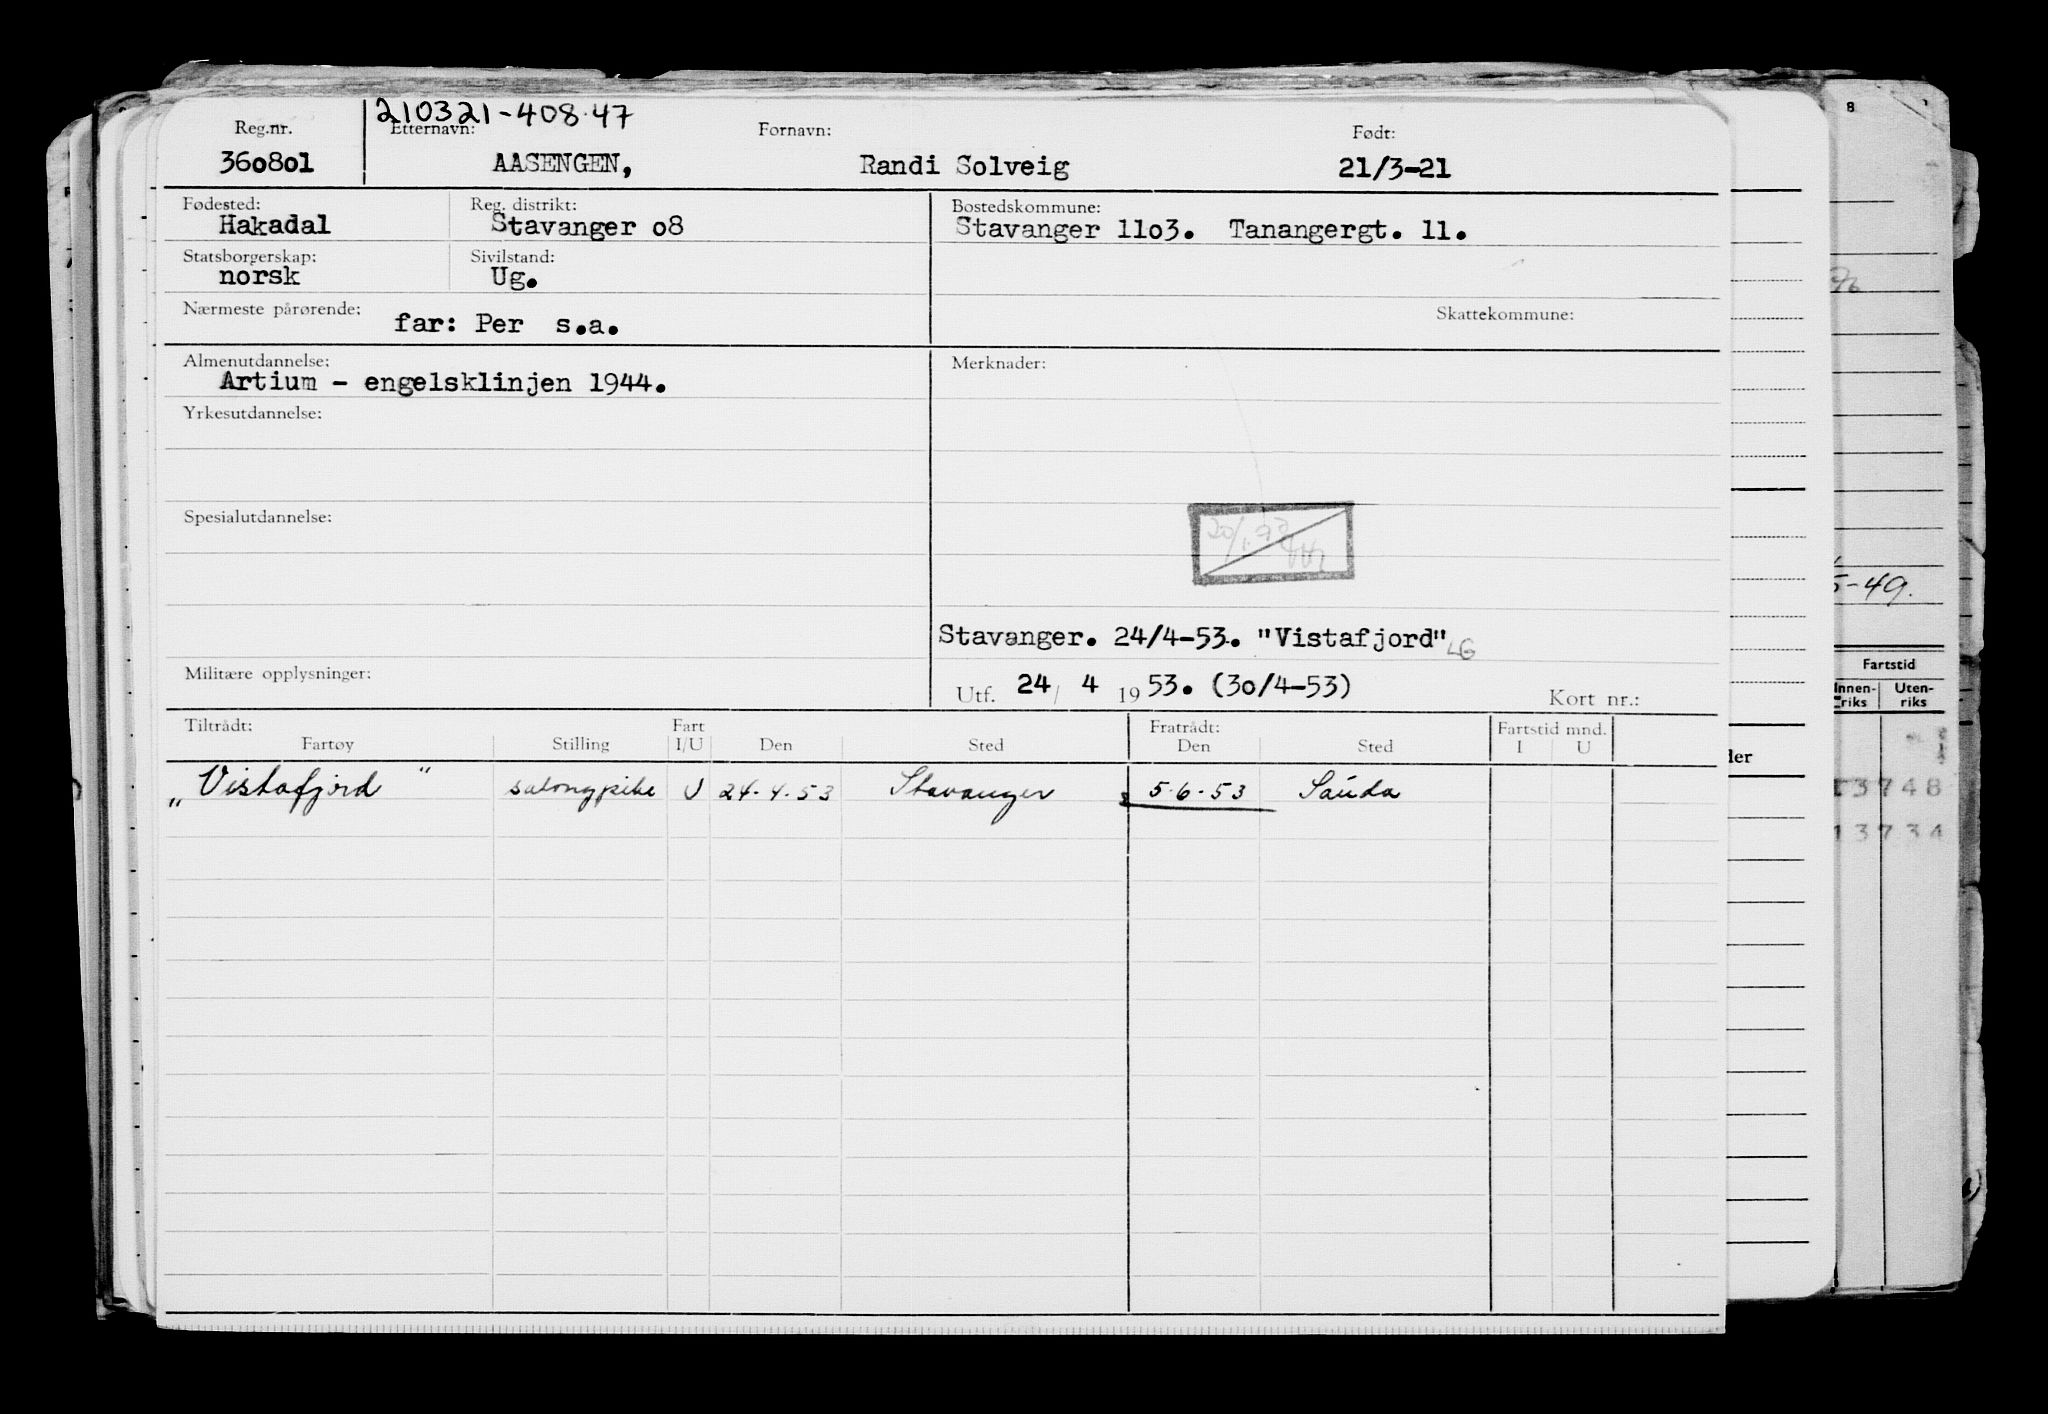 210321-408.47
Reg.nr. Etternavn: Fornavn: Født:
360801 AASENGEN, Randi Solveig 21/3-21
Fødested: Reg. distrikt: Bostedskommune:
Hakadal Stavanger o8 Stavanger 11o3. Tanangergt. 11.
Statsborgerskap: Sivilstand:
norsk Ug.
Nærmeste pårørende: Skattekommune:
far: Per s.a.
Almenutdannelse: Merknader:
Artium - engelsklinjen 1944.
Yrkesutdannelse:
Spesialutdannelse:
Stavanger. 24/4-53. "Vistafjord" LG
Militære opplysninger:
Utf. 24/ 4 1953. (3o/4-53) Kort nr.:
Tiltrådt: Fart Fratrådt: Fartstid mnd.
Fartøy Stilling I/U Den Sted Den Sted I U
„Vistafjord" salongpike U 24-4-53 Stavanger 5-6-53 Sauda
8
5-49.
Fartstid
Innen- Uten-
riks riks
der
13748
13734